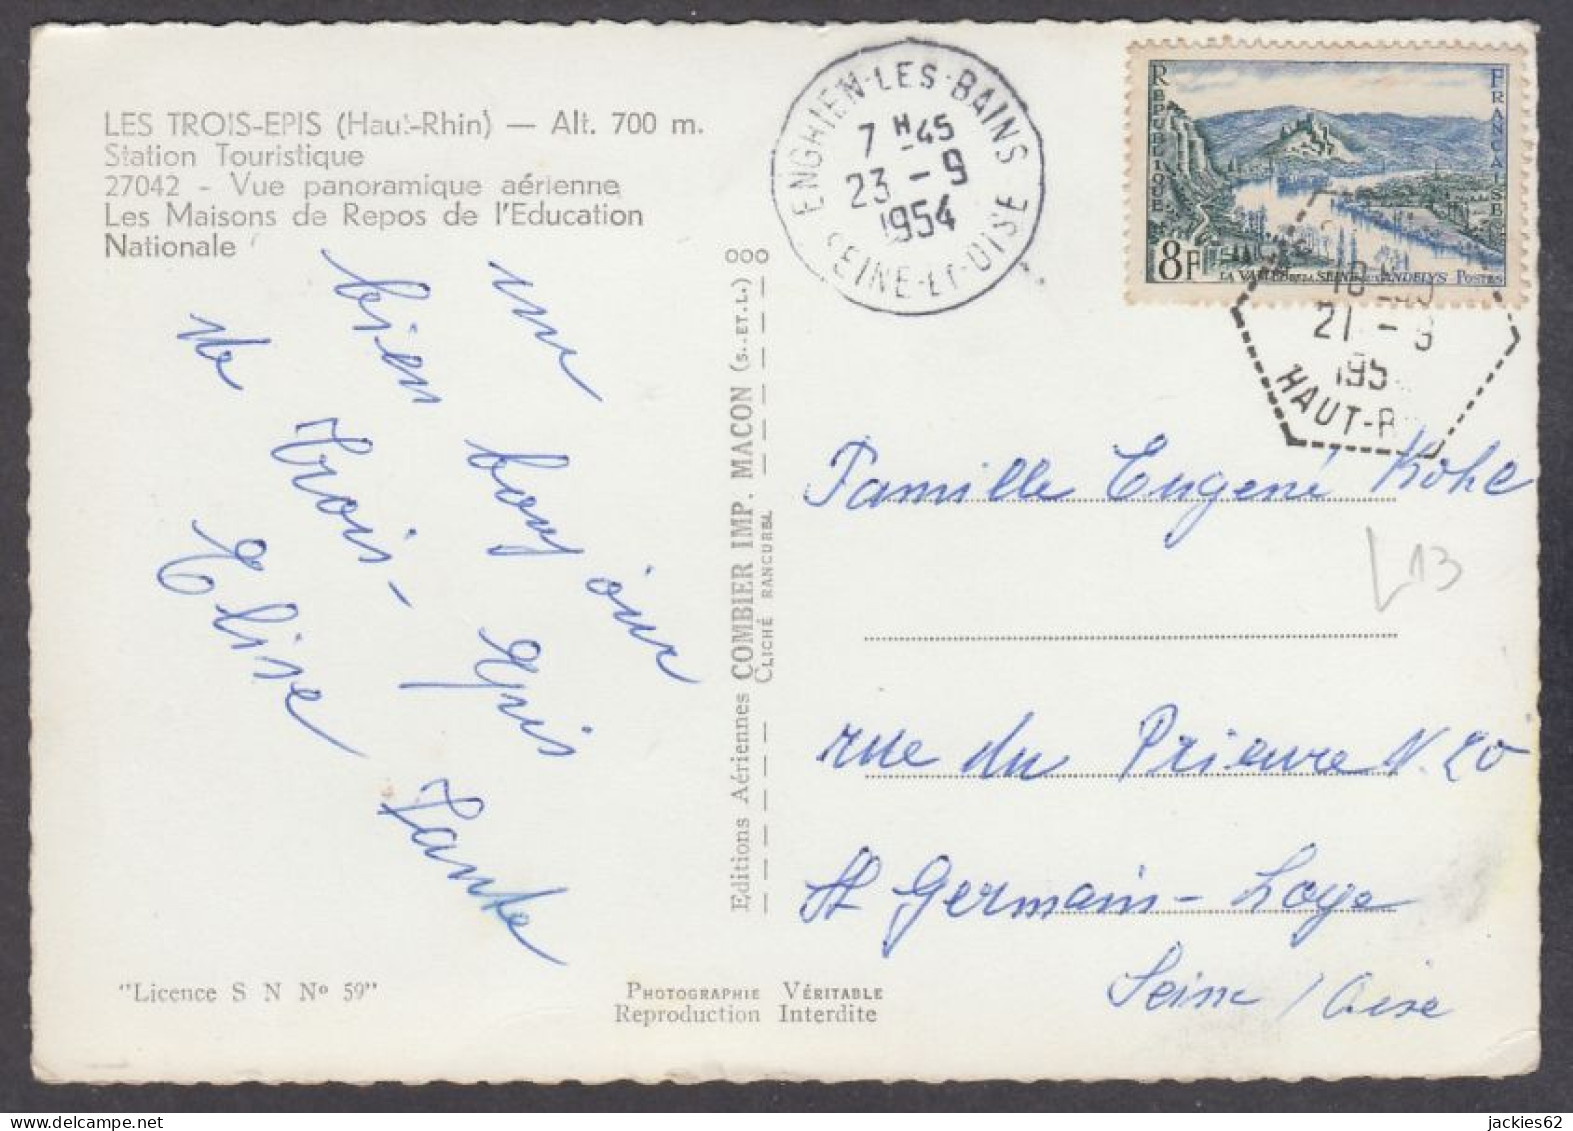 LES TROIS-EPIS (Haut-Rhin) — Alt. 700 m.
Station Touristique
27042 - Vue panoramique aérienne
Les Maisons de Repos de l'Education
Nationale
un bonjour
bien
de Trois-Epis
Tante
Elise
"Licence S N Nº 59"
Editions Aériennes COMBIER IMP. MACON (S.-ET.L.)
CLICHÉ RANCUREL
PHOTOGRAPHIE VÉRITABLE
Reproduction Interdite
ENGHIEN-LES-BAINS
7 H 45
23 - 9
1954
SEINE-ET-OISE
REPUBLIQUE FRANCAISE
8F
LA VALLÉE DE LA SEINE AUX ANDELYS POSTES
21 - 9
195
HAUT-R
Famille Eugené Kohl
L13
rue du Prieure N. 20
St Germain-Laye
Seine / Oise
jackies62